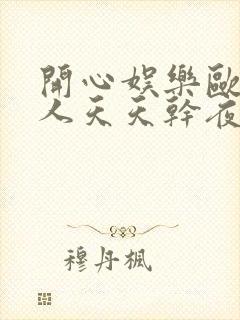 開心娛樂歐
人天天幹夜
穆丹楓